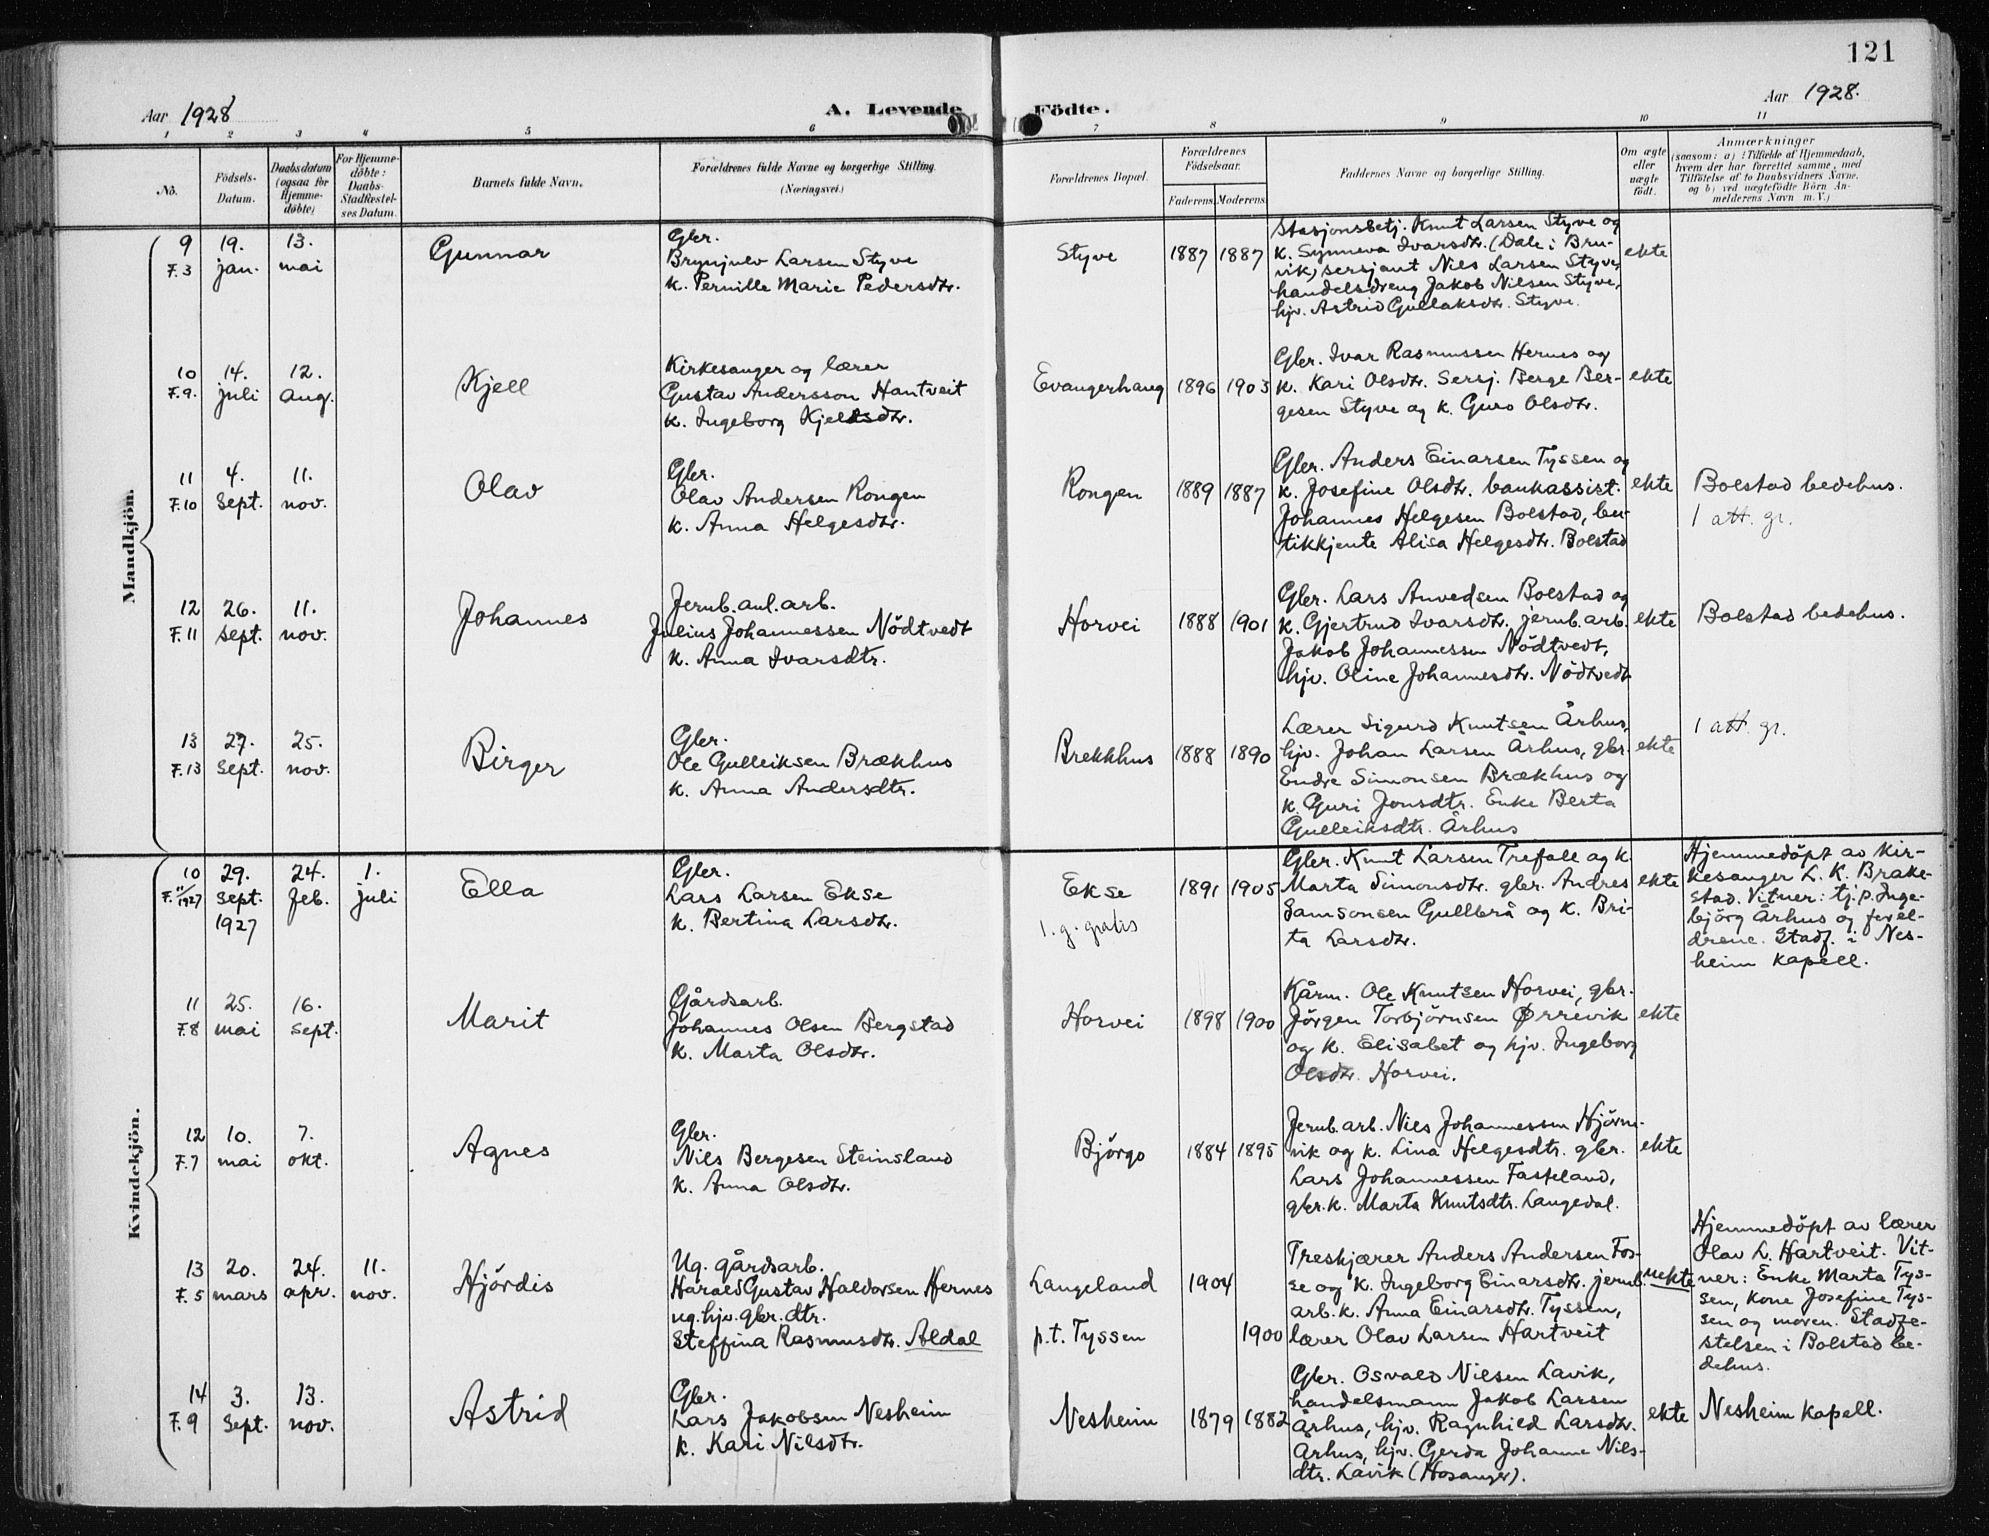 121
Aar 1928
A. Levende
Födte.
Aar 1928.
1 2 3 4 5 6 7 8 9 10 11
No.
Födsels-
Datum.
Daabsdatum
(ogsaa for
Hjemme-
døbte)
For Hjemme-
døbte:
Daabs-
Stadfestel-
ses Datum.
Barnets fulde Navn.
Forældrenes fulde Navne og borgerlige Stilling.
(Næringsvei.)
Forældrenes Bopæl.
Forældrenes
Födselsaar.
Faderens. Moderens.
Faddernes Navne og borgerlige Stilling.
Om ægte
eller
uægte
født.
Anmærkninger
(saasom: a) i Tilfælde af Hjemmedaab,
hvem der har forrettet samme, med
Tilföielse af to Daabsvidners Navne,
og b) ved uægtefödte Börn An-
melderens Navn m. V.)
Mandkjön.
9
F. 3
19.
jan.
13.
mai
Gunnar
Gbr.
Brynjulv Larsen Styve
k. Pernille Marie Pedersdtr.
Styve
1887 1887
Stasjonsbetj. Knut Larsen Styve og
k. Synneva Ivarsdtr. (Dale i Bru-
vik) sersjant Nils Larsen Styve,
handelsdreng Jakob Nilsen Styve,
hjv. Astrid Gullaksdtr. Styve.
ekte
10
F. 9.
14.
juli
12.
aug.
Kjell
Kirkesanger og lærer
Gustav Andersson Hantveit
k. Ingeborg Kjelsdtr.
Evangerhaug
1896 1903
Gbr. Ivar Rasmussen Hernes og
k. Kari Olsdtr. Sersj. Berge Ber-
gesen Styve og k. Guro Olsdtr.
ekte
11
F. 10
4.
Sept.
11.
nov.
Olav
Gbr.
Olav Andersen Rongen
k. Anna Helgesdtr.
Rongen
1889 1887
Gbr. Anders Einarsen Tyssen og
k. Josefine Olsdtr. bankassist.
Johannes Helgesen Bolstad, bu-
tikkjente Alisa Helgesdtr. Bolstad
ekte
Bolstad bedehus.
1 att. gr.
12
F. 11
26.
sept.
11.
nov.
Johannes
Jernb. anl. arb.
Julius Johannessen Nödtvedt
k. Anna Ivarsdtr.
Horvei
1888 1901
Gbr. Lars Anvedsen Bolstad og
k. Gjertrud Ivarsdtr. jernb. arb.
Jakob Johannessen Nödtvedt,
hjv. Oline Johannesdtr. Nödtvedt
ekte
Bolstad bedehus.
13
F. 13
27.
Sept.
25.
nov.
Birger
Gbr.
Ole Gulleiksen Brækhus
k. Anna Andersdtr.
Brekkhus
1888 1890
Lærer Sigurd Knutsen Århus,
hjv. Johan Larsen Århus, gbr.
Endre Simonsen Brækhus og
k. Guri Jonsdtr. Enke Berta
Gulleiksdtr. Århus
ekte
1 att. gr.
Kvindekjön.
10
F. 11/1927
29.
sept.
1927
24.
feb.
1.
juli
Ella
Gbr.
Lars Larsen Ekse
k. Bertina Larsdtr.
Ekse
1. g. gratis
1891 1905
Gbr. Knut Larsen Trefall og k.
Marta Simonsdtr. gbr. Andres
Samsonsen Gullbrå og k. Bri-
ta Larsdtr.
ekte
Hjemmedöpt av kir-
kesanger L. K. Brake-
stad. Vitner: tj. p. Inge-
björg Århus og forel-
drene. Stadf. i Nes-
heim kapell.
11
F. 8
25.
mai
16.
sept.
Marit
Gårdsarb.
Johannes Olsen Bergstad
k. Marta Olsdtr.
Horvei
1898 1900
Kårm. Ole Knutsen Horvei, gbr.
Jörgen Torbjörnsen Ørrevik
og k. Elisabet og hjv. Ingeborg
Olsdtr. Horvei.
ekte
12
F. 7
10.
mai
7.
okt.
Agnes
Gbr.
Nils Bergesen Steinsland
k. Anna Olsdtr.
Bjørgo
1884 1895
Jernb. arb. Nils Johannessen Hjörne-
vik og k. Lina Helgesdtr. gbr.
Lars Johannessen Fasteland,
gbr. k. Marta Knutsdtr. Langedal.
ekte
13
F. 5
20.
mars
24.
apr.
11.
nov.
Hjördis
Ug. gårdsarb.
Harald Gustav Haldorsen Hernes
ug. hjv. gbr. dtr.
Steffina Rasmusdtr. Aldal
Langeland
p.t. Tyssen
1904
1900
Treskjærer Anders Andersen Fos-
se og k. Ingeborg Einarsdtr. jernb.
arb. k. Anna Einarsdtr. Tyssen,
lærer Olav Larsen Hartveit
uekte
Hjemmedöpt av lærer
Olav L. Hartveit. Vit-
ner: Enke Marta Tys-
sen, kone Josefine Tys-
sen og moren. Stadfe-
stelsen i Bolstad be-
dehus.
14
F. 9
3.
Sept.
13.
nov.
Astrid
Gbr.
Lars Jakobsen Nesheim
k. Kari Nilsdtr.
Nesheim
1879 1882
Gbr. Osvald Nilsen Lavik,
handelsmann Jakob Larsen
Århus, hjv. Ragnhild Larsdtr.
Århus, hjv. Gerda Johanne Nils-
dtr. Lavik (Hosanger).
ekte
Nesheim kapell.